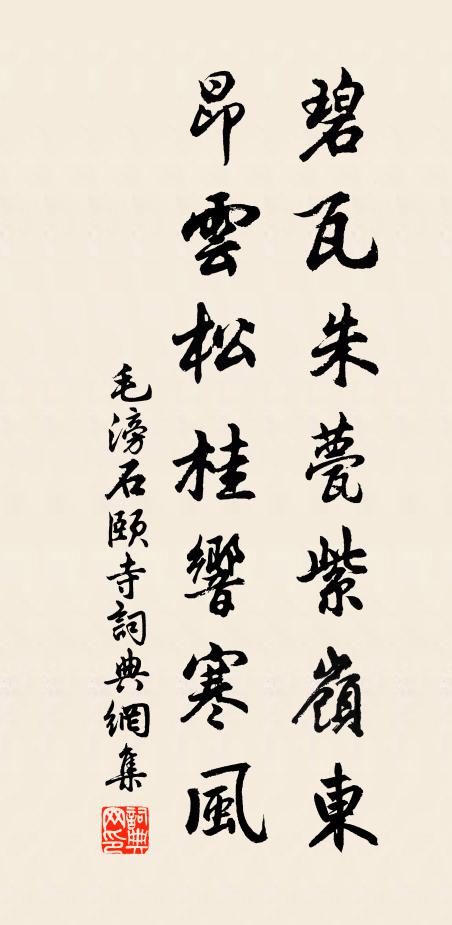 碧瓦朱甍紫嶺東
昂雲松桂響寒風
毛滂石頤寺詞典網集
詞典网印